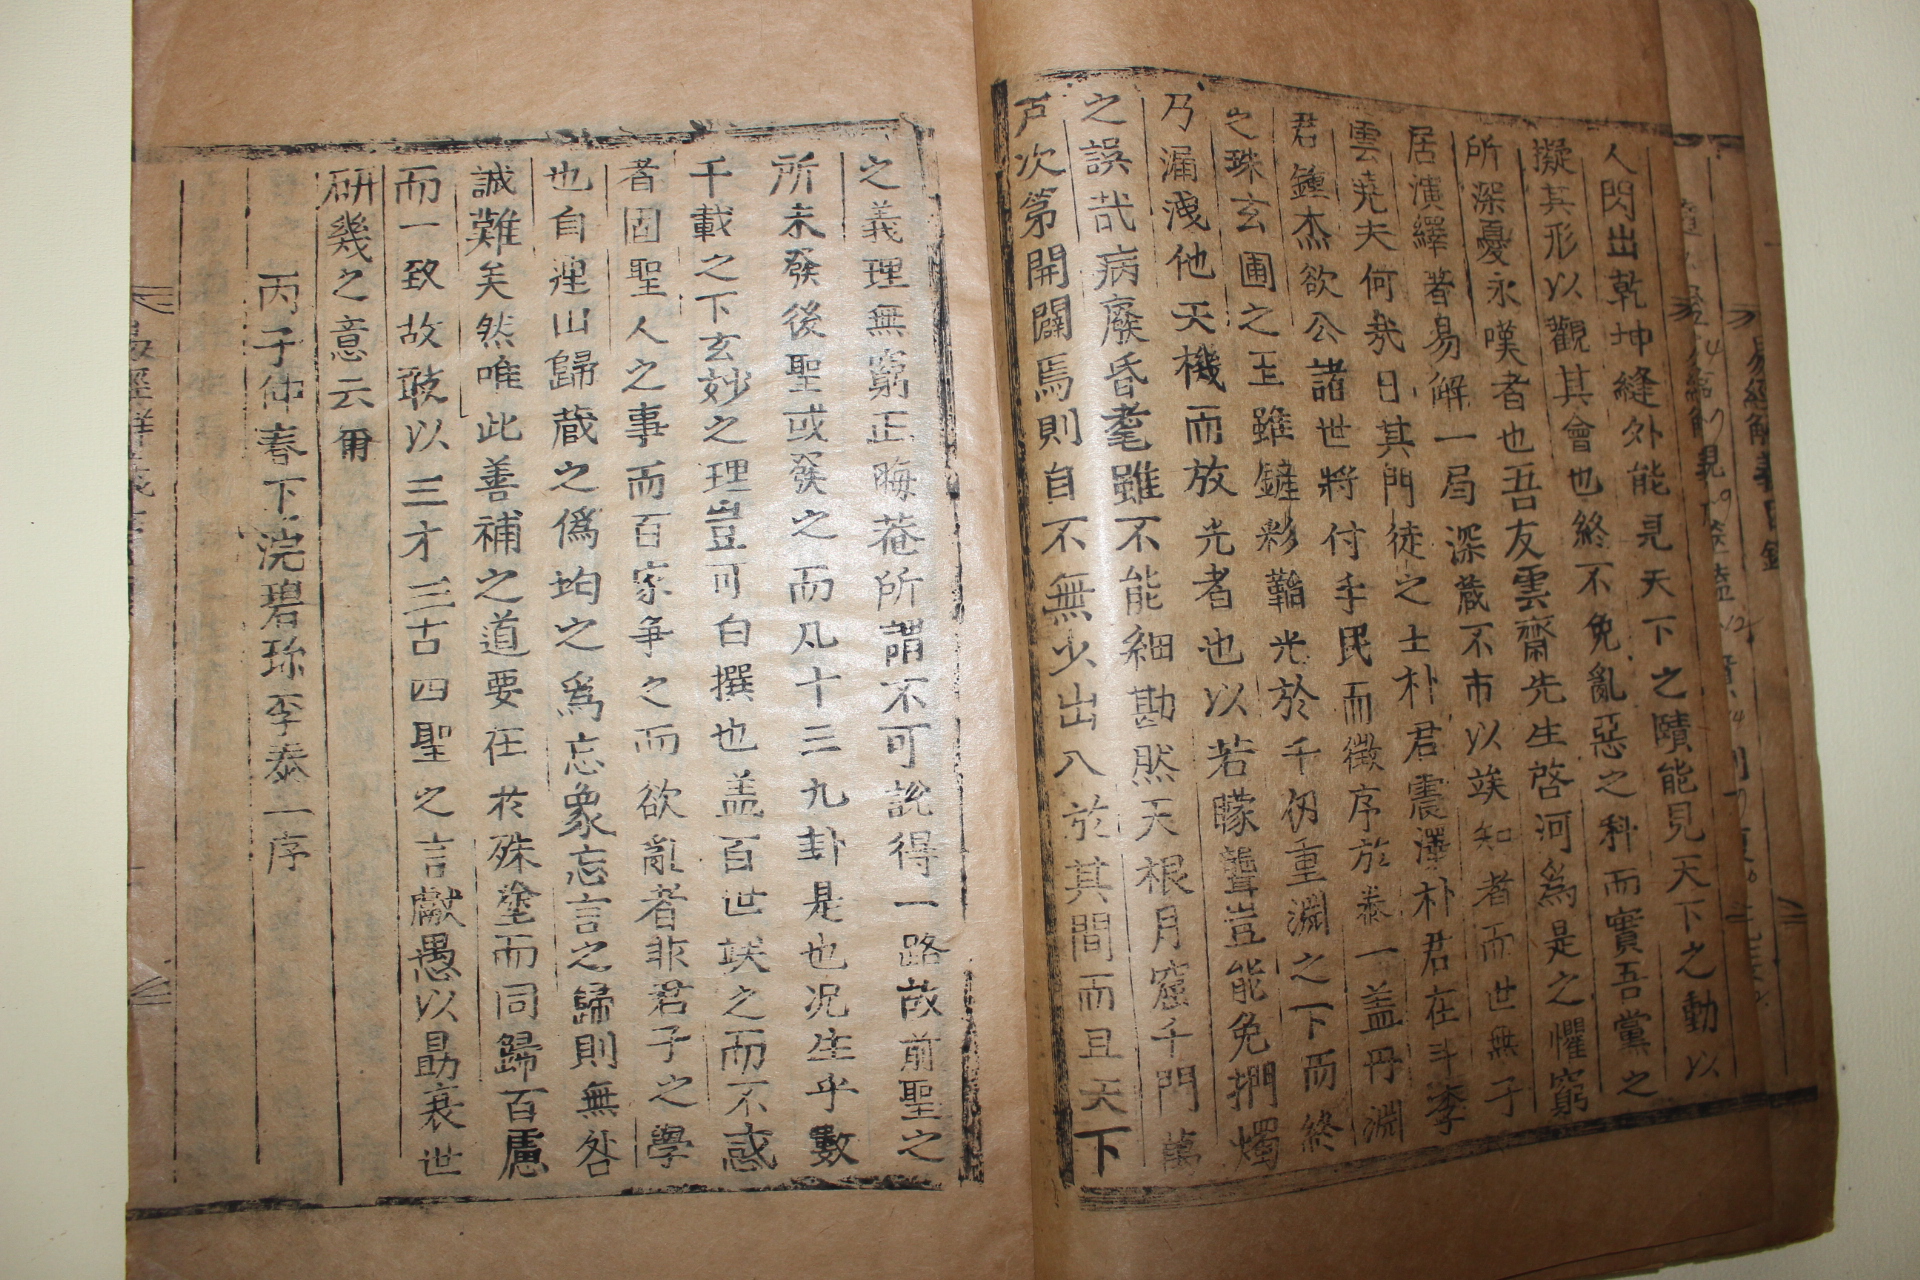 人閃出乾坤縫外能見天下之賾能見天下之動以
擬其形以觀其會也終不免亂惡之科而實吾黨之
所深憂永嘆者也吾友雲齋先生啓河爲是之懼窮
居演繹著易解一局深藏不市以竢知者而世無子
雲堯夫何㦲日其門徒之士朴君震澤朴君在斗李
君鍾杰欲公諸世將付手民而徵序於泰一盖丹淵
之珠玄圃之玉雖鏟彩韜光於千仞重淵之下而終
乃漏洩他天機而放光者也以若矇聾豈能免捫燭
之誤哉病廢昏耄雖不能細勘然天根月窟千門萬
戶次第開闢焉則自不無少出入於其間而且天下
之義理無窮正晦菴所謂不可說得一路故前聖之
所未發後聖或發之而凡十三九卦是也况生乎數
千載之下玄妙之理豈可白撰也盖百世竢之而不惑
者固聖人之事而百家爭之而欲亂者非君子之學
也自連山歸藏之僞均之爲忘象忘言之歸則無咎
誠難矣然唯此善補之道要在於殊塗而同歸百慮
而一致故敢以三才三古四聖之言獻愚以勗衰世
研幾之意云爾
丙子仲春下浣碧珍李泰一序